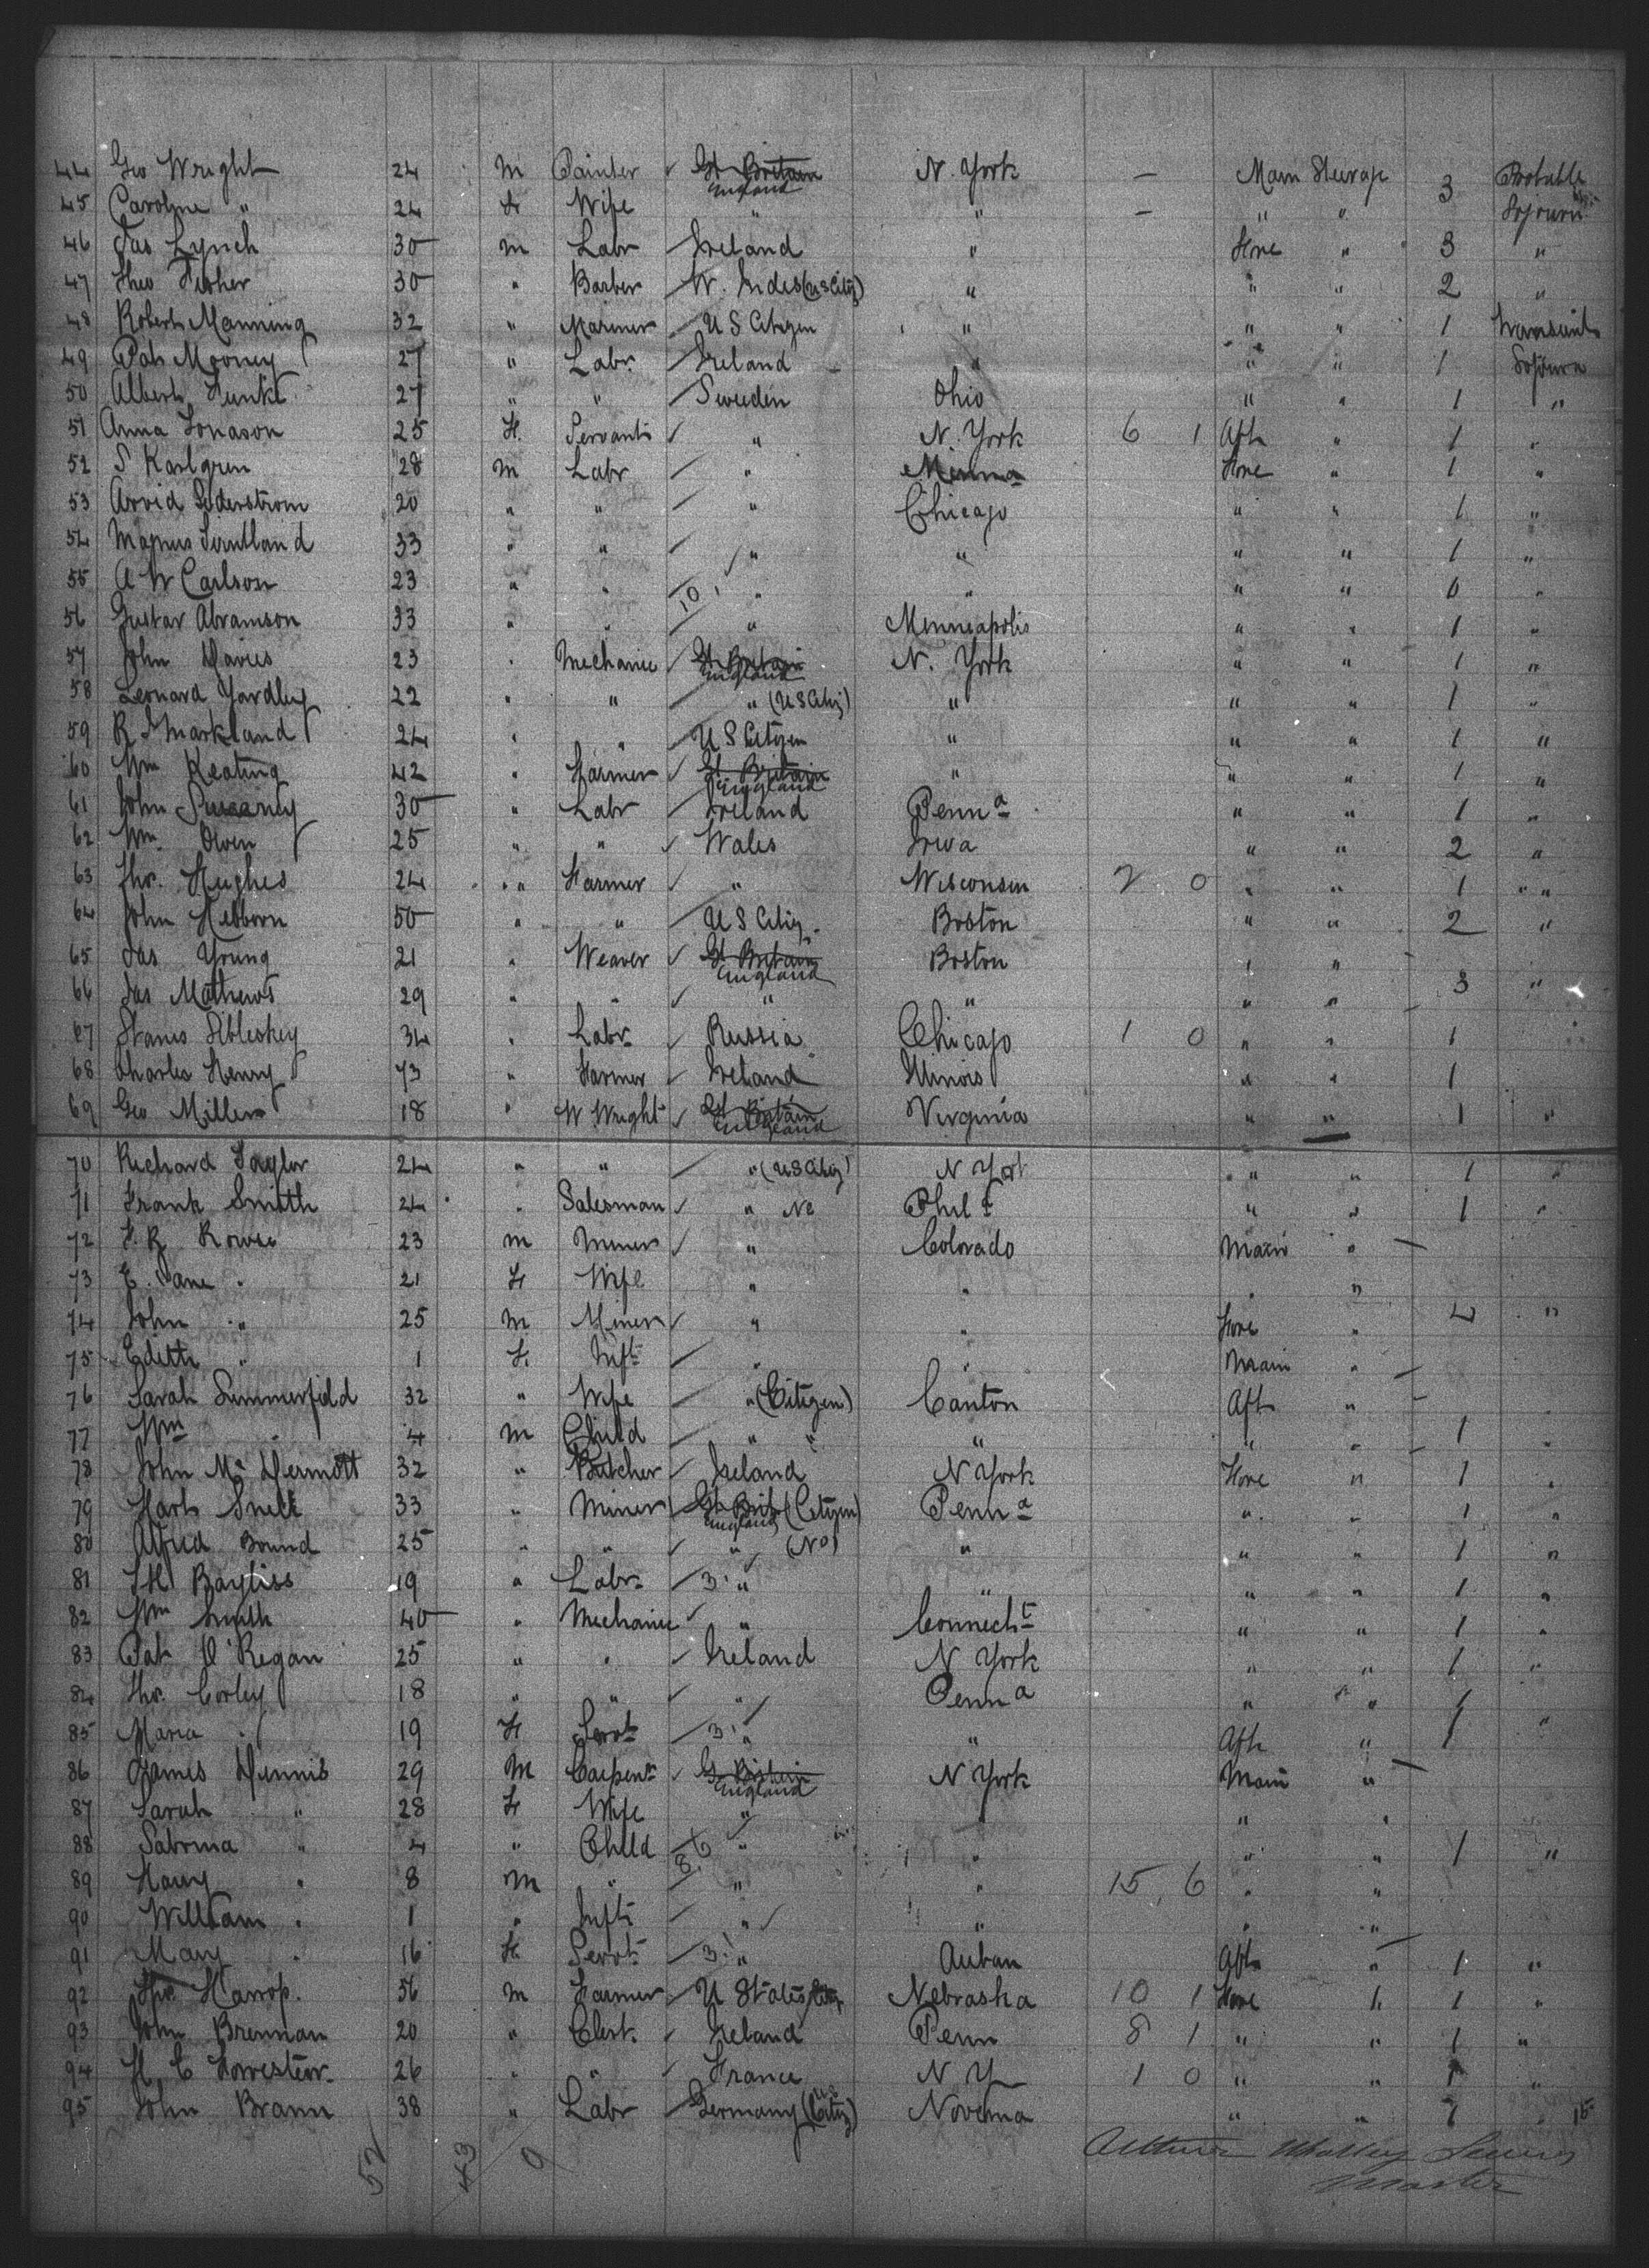 44 Geo Wright 24 m Painter Gt Britain England N. York — Main Steerage 3 Probable
45 Caroline " 24 F Wife " " — " " Sojourn
46 Jas Lynch 30 m Labr Ireland " Fore " 3 "
47 Theo Fisher 30 " Barber W. Indes (US Citiz) " " " 2 "
48 Robert Manning 32 " Mariner U S Citizen " " " 1
49 Pat Mooney 27 " Labr Ireland " " " 1 Sojourn
50 Albert Funke 27 " " Sweden Ohio " " 1 "
51 Anna Jonason 25 F. Servant " N. York 6 1 Aft " 1 "
52 S Karlgren 28 m Labr " Minna Fore " 1 "
53 Arvid Soderstrom 20 " " " Chicago " " 1 "
54 Magnus 33 " " " " " " 1 "
55 A W Carlson 23 " " 10 " " " " 0 "
56 Gustav Abramson 33 " " " Minneapolis " " 1 "
57 John Davies 23 " Mechanic Gt Britain England N. York " " 1 "
58 Leonard Yardley 22 " " " (US Citiz) " " " 1 "
59 R S Markland 24 " " U S Citizen " " " 1 "
60 Wm Keating 42 " Farmer Gt Britain England " " " 1 "
61 John 30 " Labr Ireland Penna " " 1 "
62 Wm Owen 25 " " Wales Iowa " " 2 "
63 Tho. Hughes 24 " " Farmer " Wisconsin 2 0 " " 1 " "
64 John Hebborn 50 " " U S Citiz. Boston " " 2 "
65 Jas Young 21 " Weaver Gt Britain England Boston " "
66 Jas Mathews 29 " " " " " " 3 "
67 Stanis 34 " Labr Russia Chicago 1 0 " " 1 "
68 Charles Henry 73 " Farmer Ireland Illinois " " 1
69 Geo Miller 18 " W. Wright Gt Britain England Virginia " " 1 "
70 Richard Taylor 24 " " " (US Citiz) N York " " 1 "
71 Frank Smith 24 " Salesman " No Phila " " 1 "
72 F. R Rowse 23 m Miner " Colorado Main " —
73 E. Jane " 21 F Wife " " " "
74 John " 25 m Miner " " Fore " 4 "
75 Edith " 1 F. Inft " " Main " —
76 Sarah Summerfield 32 " Wife " (Citizen) Canton Aft " —
77 Wm " 4 m Child " " " " " 1 "
78 John McDermott 32 " Butcher Ireland N York Fore " 1 "
79 Mark Snell 33 " Miner Gt Brit England (Citizen) Penna " " 1 "
80 Alfred Bound 25 " " " (No) " " " 1 "
81 Bayliss 19 " Labr 3 " " " " 1 "
82 Wm Smith 40 " Mechanic " Connect " " 1 "
83 Pat O'Regan 25 " " Ireland N York " " 1 "
84 Tho. Corley 18 " " " Penna " " 1
85 Maria " 19 F Servt 3 " " Aft " 1 "
86 James Dennis 29 M Carpenr Gt Britain England N York Main " —
87 Sarah " 28 F Wife " " " "
88 Sabrina " 4 " Child 8 6 " " " " 1 "
89 Harry " 8 m " " " 15 6 " "
90 William " 1 " Inft " " " "
91 Mary " 16 F. Servt 3 " Auban Aft " — 1 "
92 Tho. Harrop. 56 m Farmer U States Citiz Nebraska 10 1 Fore " 1 "
93 John Brennan 20 " Clerk. Ireland Penn 8 1 " " 1 "
94 H C Forrester 26 " " France N Y 1 0 " " 1 "
95 John Brann 38 " Labr Germany (US Citiz) " " " 15
52 43 9
Arthur Lewis
Master